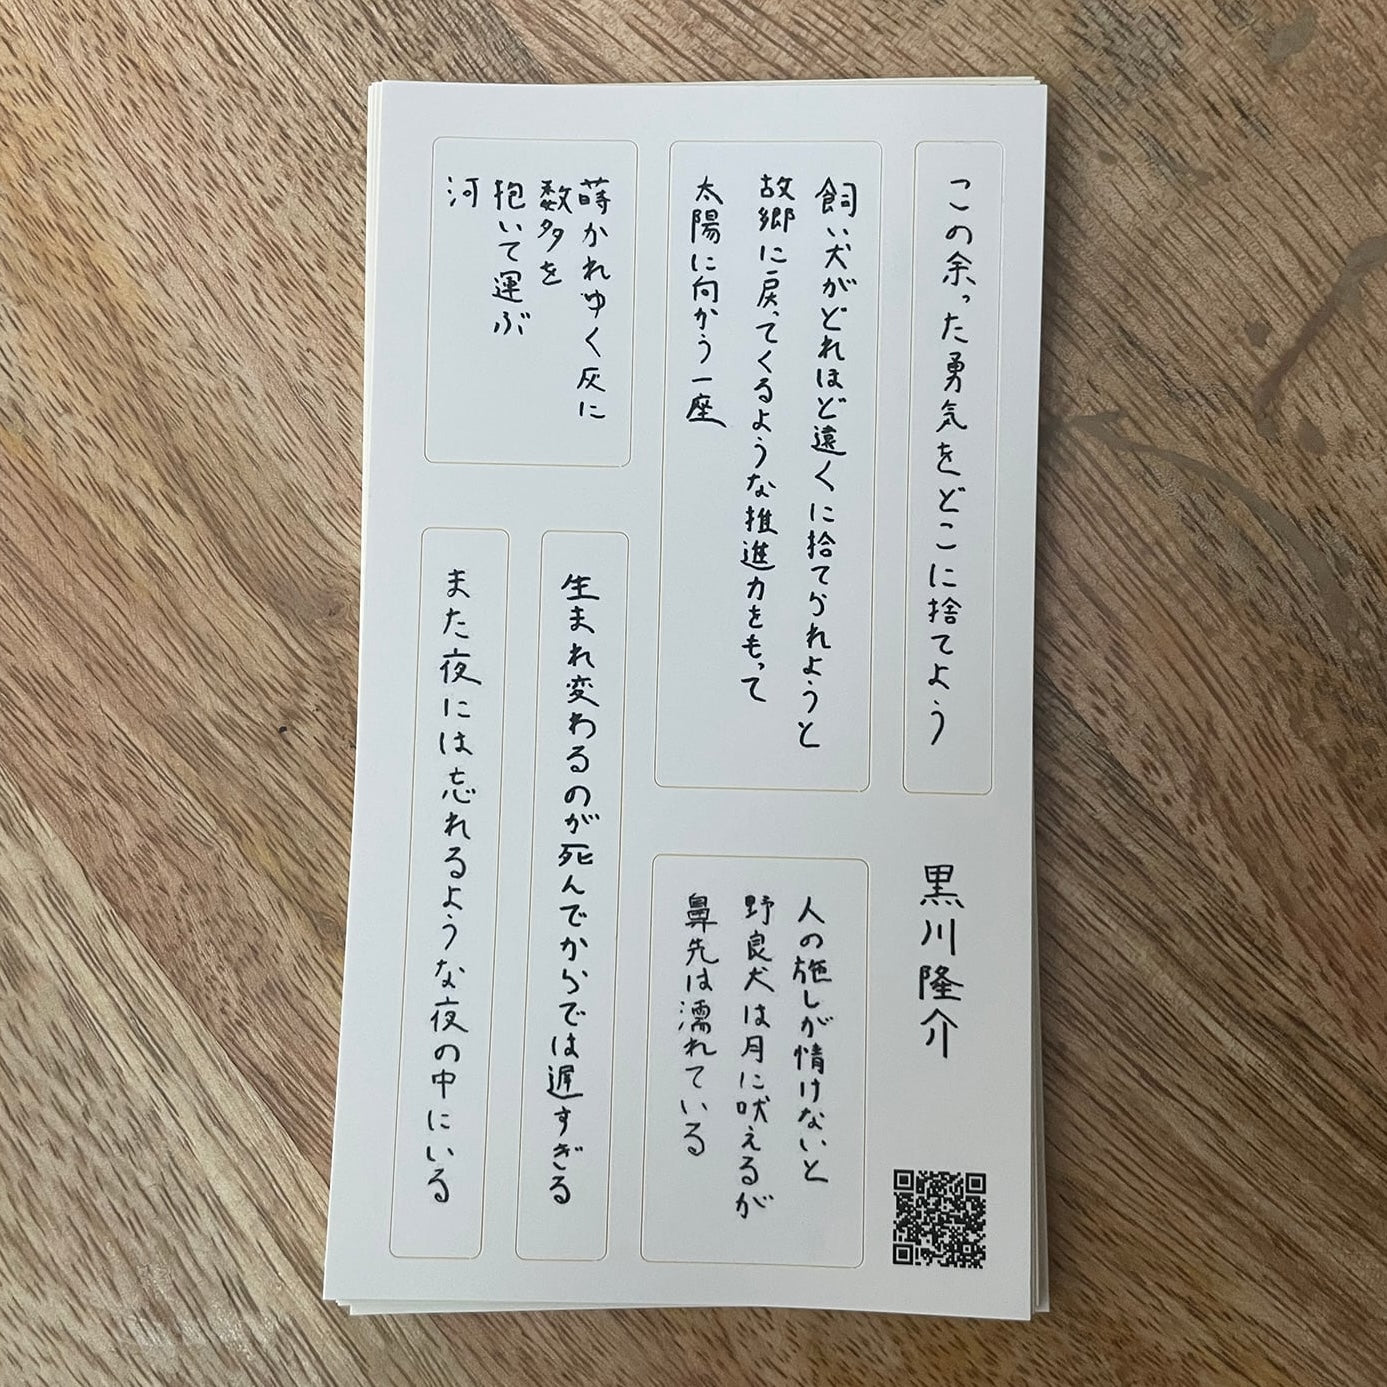 この余った勇気をどこに捨てよう
飼い犬がどれほど遠くに捨てられようと
故郷に戻ってくるような推進力をもって
太陽に向かう一座
蒔かれゆく灰に
数多を
抱いて運ぶ
河
黒川隆介
人の施しが情けないと
野良犬は月に吠えるが
鼻先は濡れている
生まれ変わるのが死んでからでは遅すぎる
また夜には忘れるような夜の中にいる